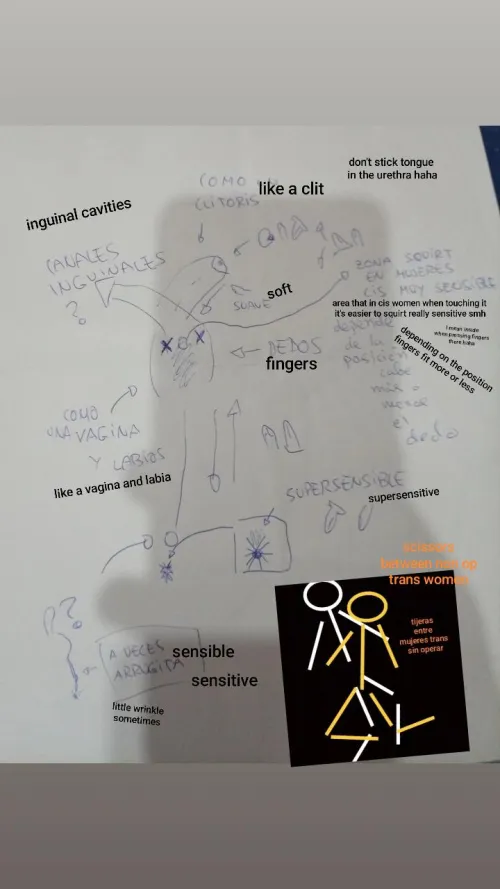 don't stick tongue
in the urethra haha
COMO
CLITORIS
like a clit
inguinal cavities
CANALES
INGUINALES
?
SUAVE
soft
ZONA SQUIRT
EN MUJERES
CIS MUY SENSIBLE
area that in cis women when touching it
it's easier to squirt really sensitive smh
I mean inside
when pressing fingers
there haha
depende
de la
posición
cabe
más o
menos
el
dedo
depending on the position
fingers fit more or less
X X
DEDOS
fingers
COMO
UNA VAGINA
Y LABIOS
like a vagina and labia
SUPERSENSIBLE
supersensitive
scissors
between non op
trans women
tijeras
entre
mujeres trans
sin operar
?
A VECES
ARRUGITA
sensible
sensitive
little wrinkle
sometimes